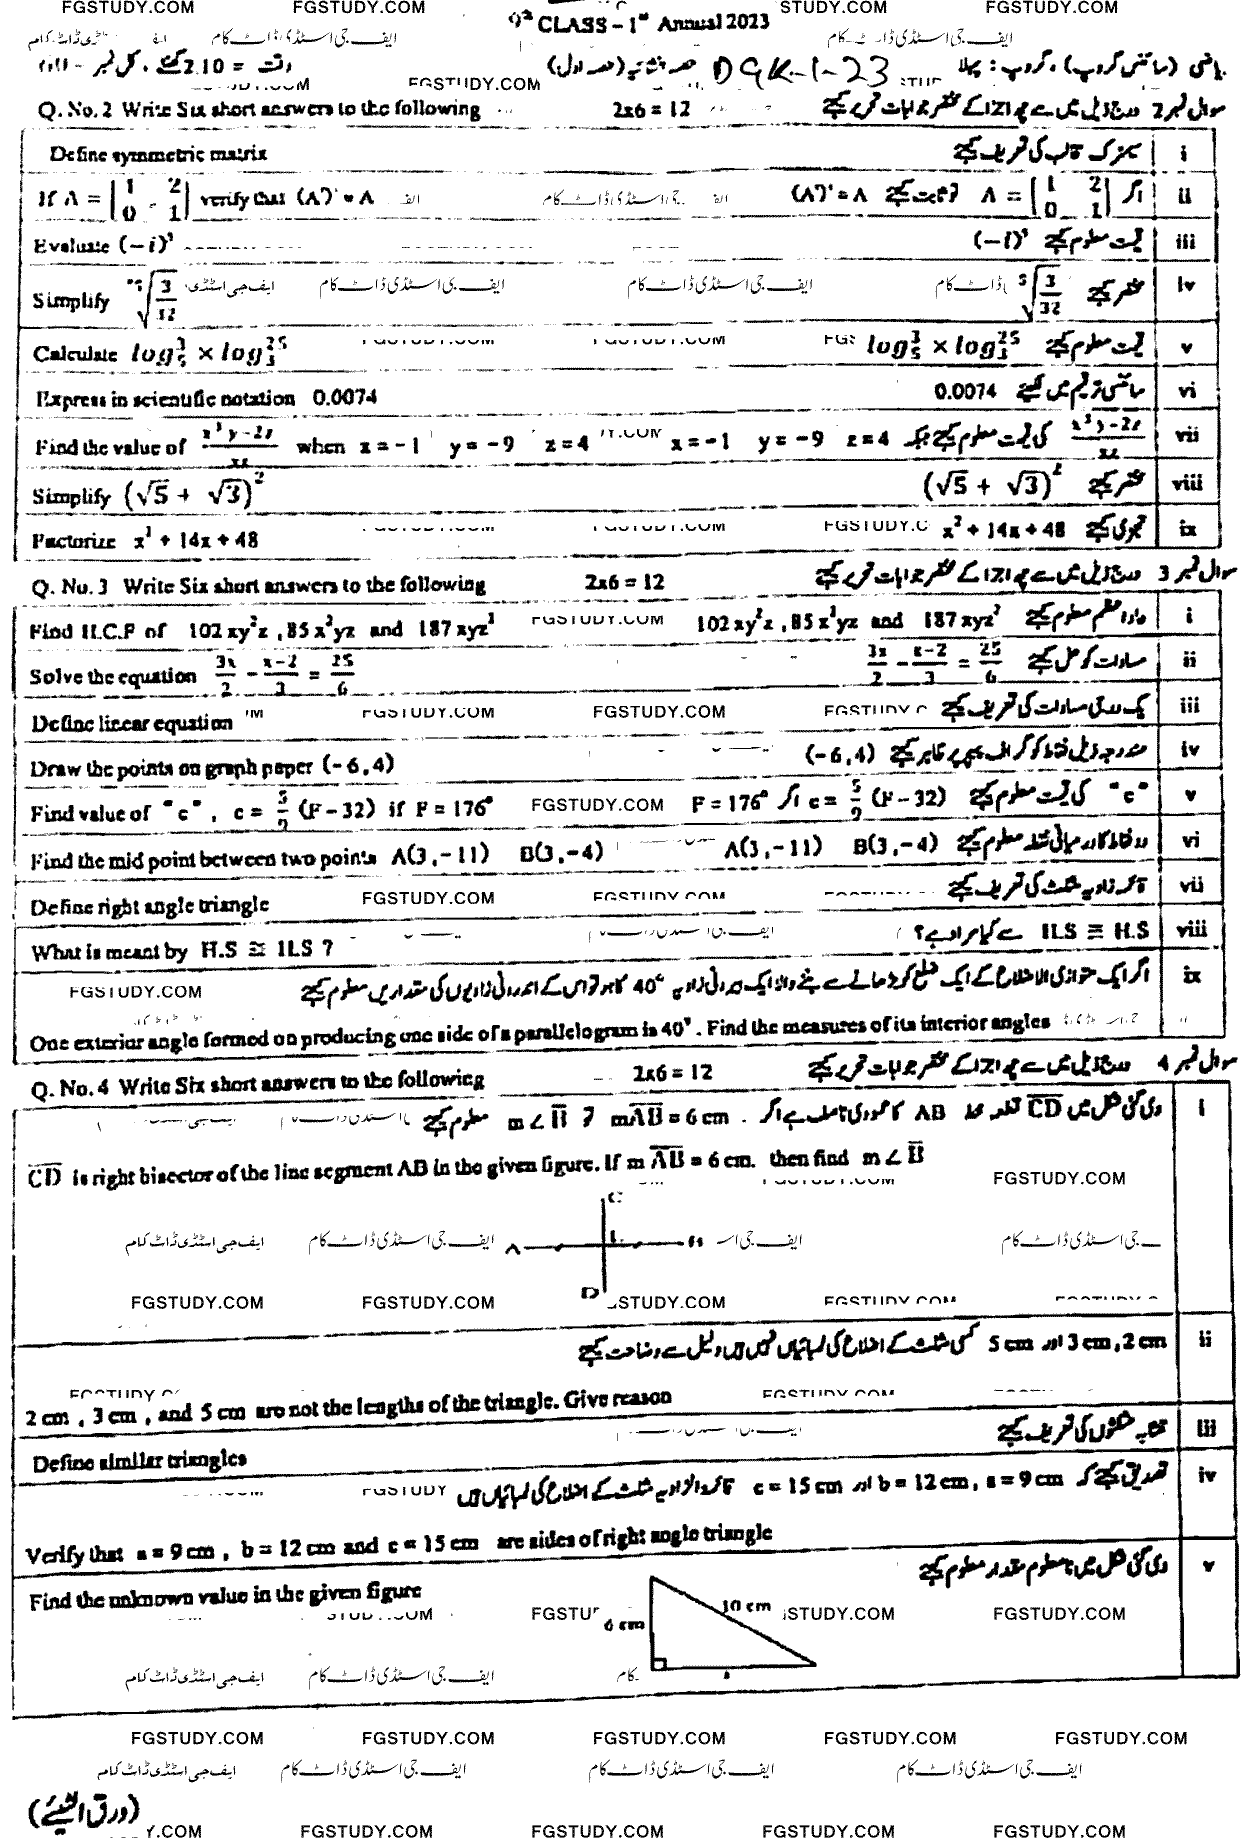 FGSTUDY.COM FGSTUDY.COM STUDY.COM FGSTUDY.COM
9th CLASS – 1st Annual 2023
ایف جی اسٹڈی ڈاٹ کام ایف جی اسٹڈی ڈاٹ کام
ریاضی (سائنس گروپ) ، گروپ : پہلا DGK-1-23 حصہ انشائیہ (حصہ اول) وقت = 2.10 گھنٹے ، کل نمبر
FGSTUDY.COM
Q. No. 2 Write Six short answers to the following 2x6 = 12 سوال نمبر 2 درج ذیل میں سے چھ اجزا کے مختصر جوابات تحریر کیجئے
Define symmetric matrix سمیٹرک قالب کی تعریف کیجئے i
If A = |1 2; 0 -1| verify that (A')' = A (A')' = A ثابت کیجئے تو A = |1 2; 0 1| اگر ii
Evaluate (−i)⁹ (−i)⁹ قیمت معلوم کیجئے iii
Simplify ⁵√(3/32) ⁵√(3/32) مختصر کیجئے iv
Calculate log₅³ × log₃²⁵ log₅³ × log₃²⁵ قیمت معلوم کیجئے v
Express in scientific notation 0.0074 0.0074 سائنسی ترقیم میں لکھیے vi
Find the value of (x³y−2z)/xz when x = −1 y = −9 z = 4 x = −1 y = −9 z = 4 کی قیمت معلوم کیجئے جبکہ (x³y−2z)/xz vii
Simplify (√5 + √3)² (√5 + √3)² مختصر کیجئے viii
Factorize x² + 14x + 48 x² + 14x + 48 تجزی کیجئے ix
Q. No. 3 Write Six short answers to the following 2x6 = 12 سوال نمبر 3 درج ذیل میں سے چھ اجزا کے مختصر جوابات تحریر کیجئے
Find H.C.F of 102xy²z , 85x²yz and 187xyz² 102xy²z , 85x²yz and 187xyz² عاد اعظم معلوم کیجئے i
Solve the equation 3x/2 − (x−2)/3 = 25/6 3x/2 − (x−2)/3 = 25/6 مساوات کو حل کیجئے ii
Define linear equation یک درجی مساوات کی تعریف کیجئے iii
Draw the points on graph paper (−6,4) (−6,4) مندرجہ ذیل نقاط کو گراف پیپر پر ظاہر کیجئے iv
Find value of "c" , c = 5/9 (F−32) if F = 176° F = 176° اگر c = 5/9 (F−32) کی قیمت معلوم کیجئے "c" v
Find the mid point between two points A(3,−11) B(3,−4) A(3,−11) B(3,−4) دو نقاط کا درمیانی نقطہ معلوم کیجئے vi
Define right angle triangle قائمہ زاویہ مثلث کی تعریف کیجئے vii
What is meant by H.S ≅ H.S ? H.S ≅ H.S سے کیا مراد ہے؟ viii
اگر ایک متوازی الاضلاع کے ایک ضلع کو بڑھانے سے بننے والا ایک بیرونی زاویہ 40° کا ہو تو اس کے اندرونی زاویوں کی مقداریں معلوم کیجئے ix
One exterior angle formed on producing one side of a parallelogram is 40°. Find the measures of its interior angles
Q. No. 4 Write Six short answers to the following 2x6 = 12 سوال نمبر 4 درج ذیل میں سے چھ اجزا کے مختصر جوابات تحریر کیجئے
دی گئی شکل میں CD قطعہ خط AB کا عمودی ناصف ہے اگر mAB = 6 cm معلوم کیجئے i
CD is right bisector of the line segment AB in the given figure. If m AB = 6 cm. then find m∠B
C
A B
D
2 cm, 3 cm اور 5 cm کسی مثلث کے اضلاع کی لمبائیاں نہیں ہیں دلیل سے وضاحت کیجئے ii
2 cm , 3 cm , and 5 cm are not the lengths of the triangle. Give reason
متشابہ مثلثوں کی تعریف کیجئے iii
Define similar triangles
تصدیق کیجئے کہ a = 9 cm, b = 12 cm اور c = 15 cm قائمۃ الزاویہ مثلث کے اضلاع کی لمبائیاں ہیں iv
Verify that a = 9 cm , b = 12 cm and c = 15 cm are sides of right angle triangle
Find the unknown value in the given figure دی گئی شکل میں نامعلوم مقدار معلوم کیجئے v
6 cm 10 cm
FGSTUDY.COM FGSTUDY.COM FGSTUDY.COM FGSTUDY.COM FGSTUDY.COM
ایف جی اسٹڈی ڈاٹ کام ایف جی اسٹڈی ڈاٹ کام ایف جی اسٹڈی ڈاٹ کام ایف جی اسٹڈی ڈاٹ کام
(ورق الٹیئے)
Y.COM FGSTUDY.COM FGSTUDY.COM FGSTUDY.COM FGSTUDY.COM